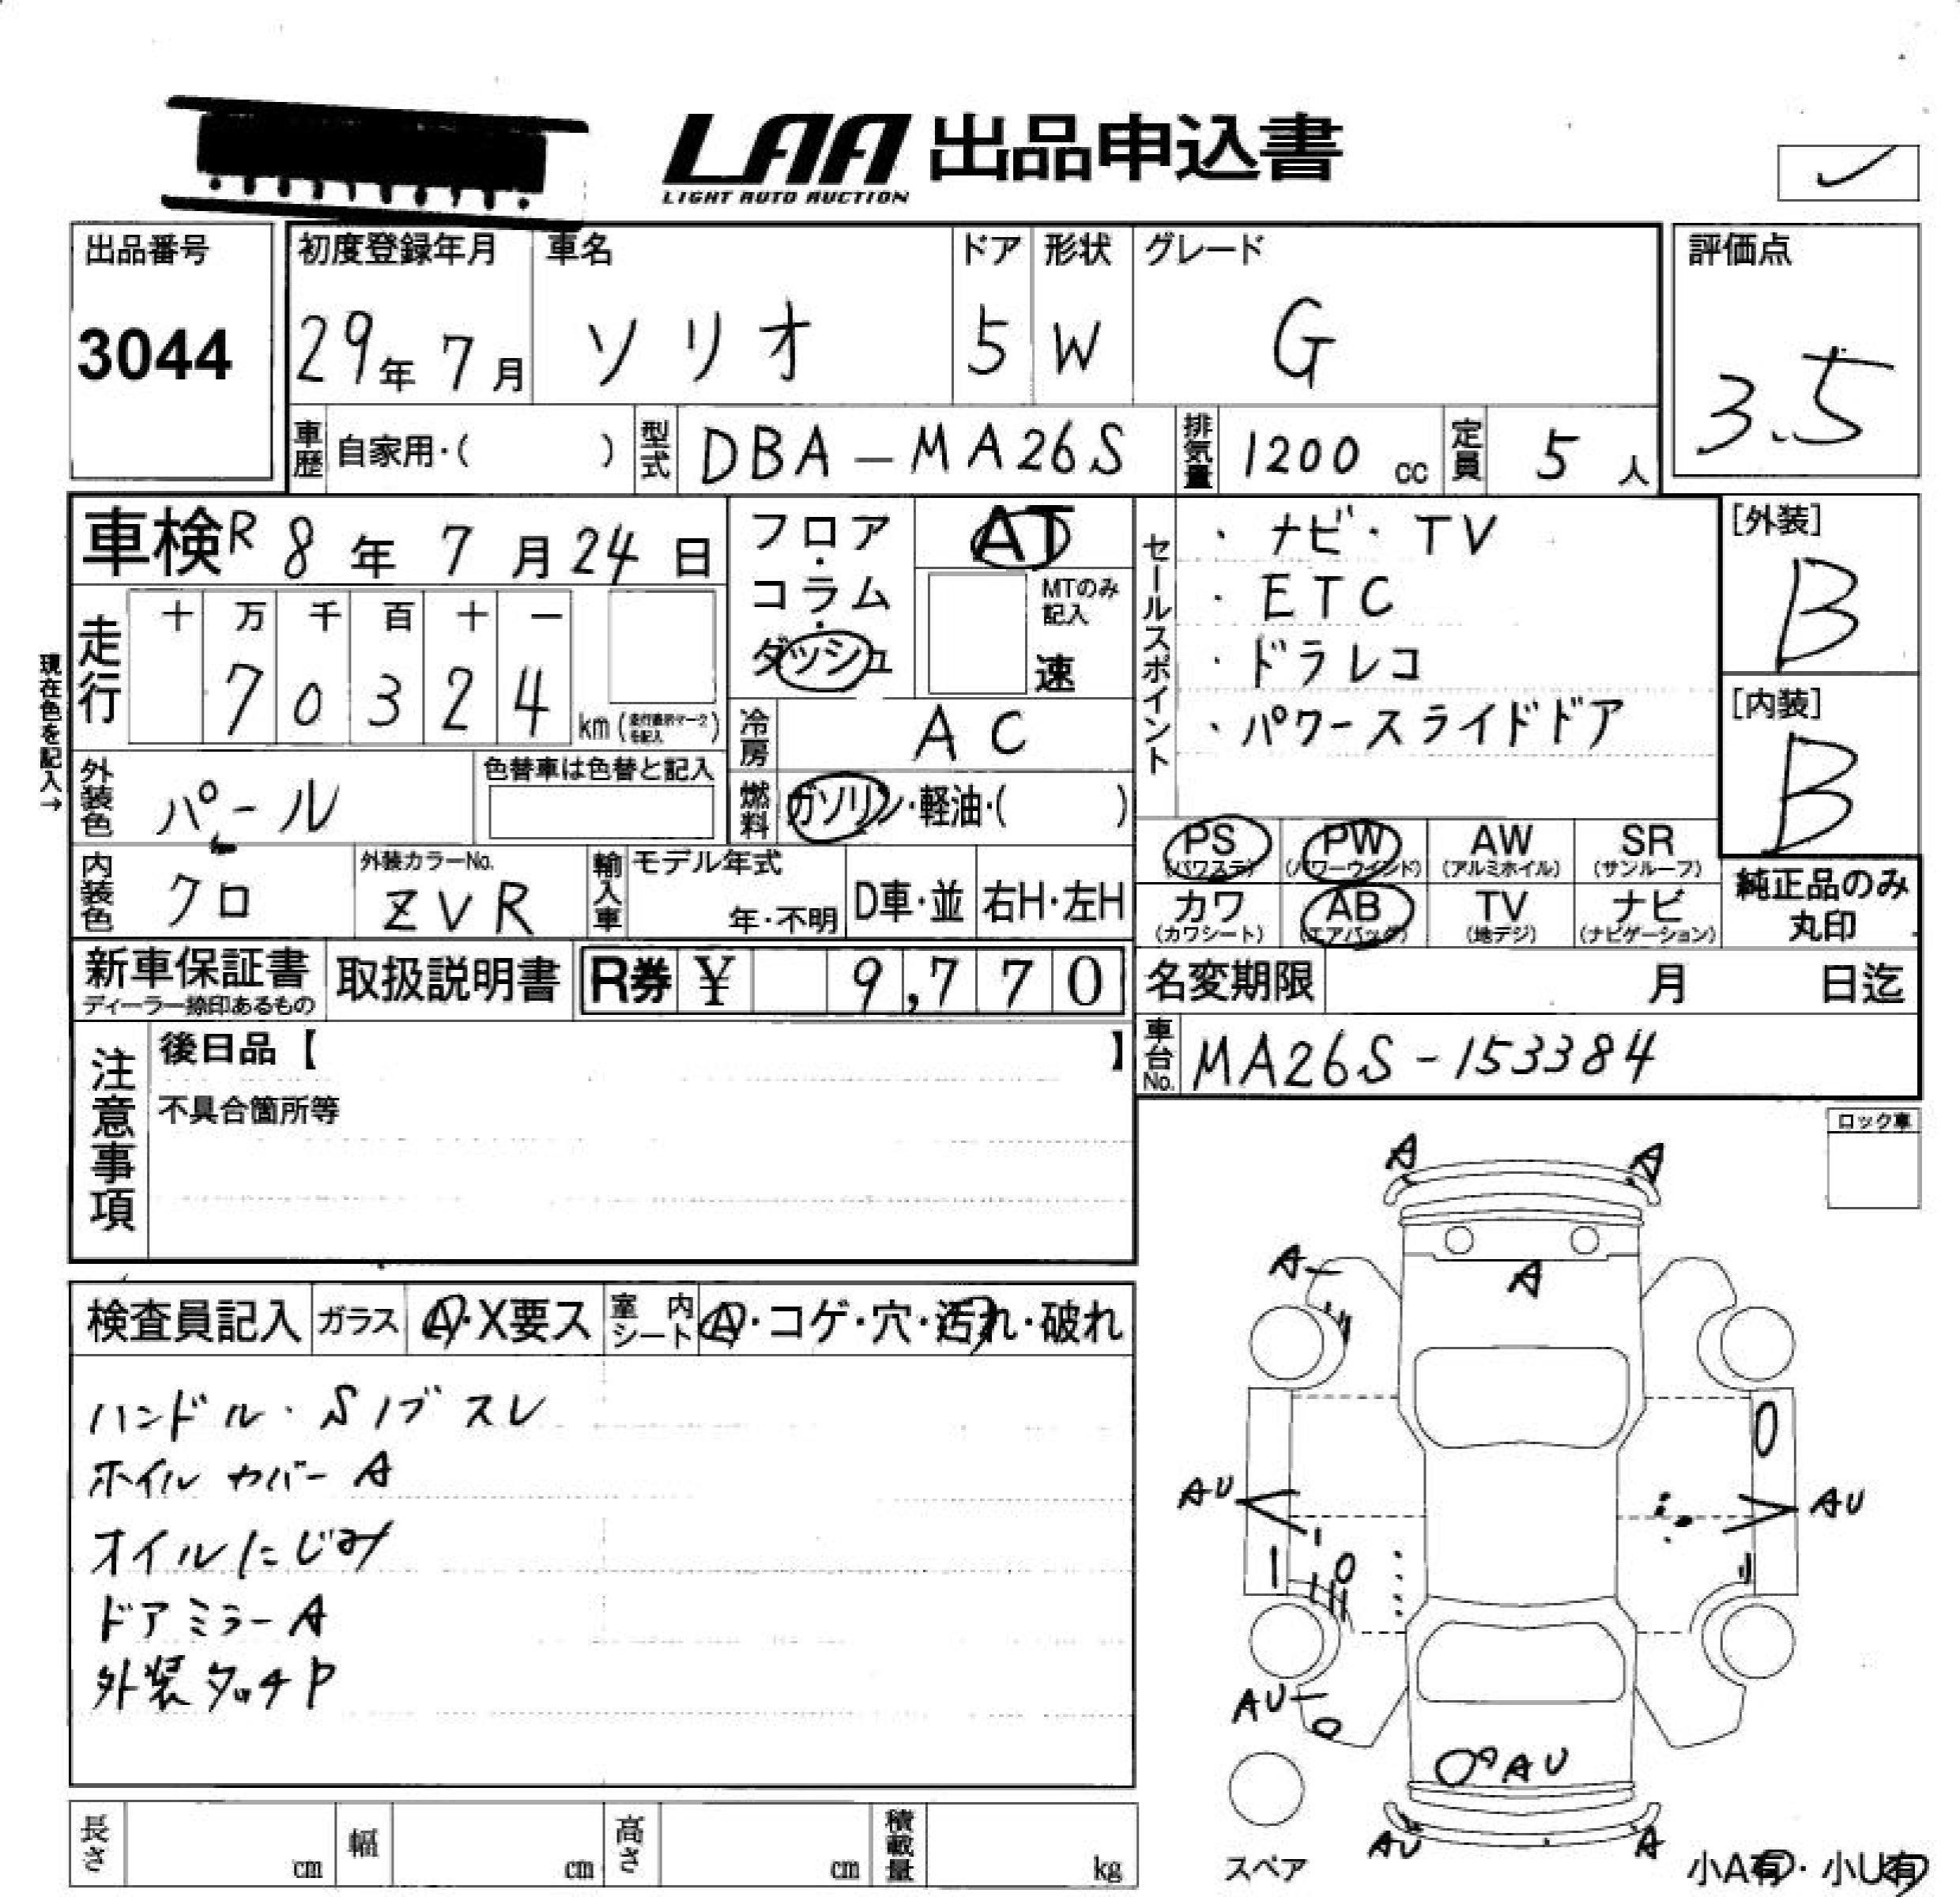 LAA 出品申込書
LIGHT AUTO AUCTION
出品番号
3044
初度登録年月
29年 7月
車名
ソリオ
ドア
5
形状
W
グレード
G
評価点
3.5
車歴 自家用・( )
型式 DBA-MA26S
排気量 1200 cc
定員 5 人
車検 R 8 年 7 月 24 日
現在色を記入→
走行
十 万 千 百 十 一
7 0 3 2 4 km
フロア・コラム・ダッシュ
AT
MTのみ記入
速
冷房 AC
燃料 ガソリン・軽油・( )
セールスポイント
・ナビ・TV
・ETC
・ドラレコ
・パワースライドドア
[外装]
B
[内装]
B
外装色 パール
色替車は色替と記入
内装色 クロ
外装カラーNo.
ZVR
輸入車
モデル年式
年・不明
D車・並
右H・左H
PS
(パワステ)
PW
(パワーウインド)
AW
(アルミホイル)
SR
(サンルーフ)
カワ
(カワシート)
AB
(エアバッグ)
TV
(地デジ)
ナビ
(ナビゲーション)
純正品のみ
丸印
新車保証書
ディーラー捺印あるもの
取扱説明書
R券 ¥ 9,770
名変期限 月 日迄
車台No. MA26S-153384
注意事項
後日品【 】
不具合箇所等
ロック車
検査員記入
ガラス
A・X要ス
室内シート
A・コゲ・穴・汚れ・破れ
ハンドル・Sノブスレ
ホイルカバーA
オイルにじみ
ドアミラーA
外装タッチP
A
A
A
A
AU
AU
AU
AU
AU
A
スペア
小A有・小U有
長さ cm
幅 cm
高さ cm
積載量 kg